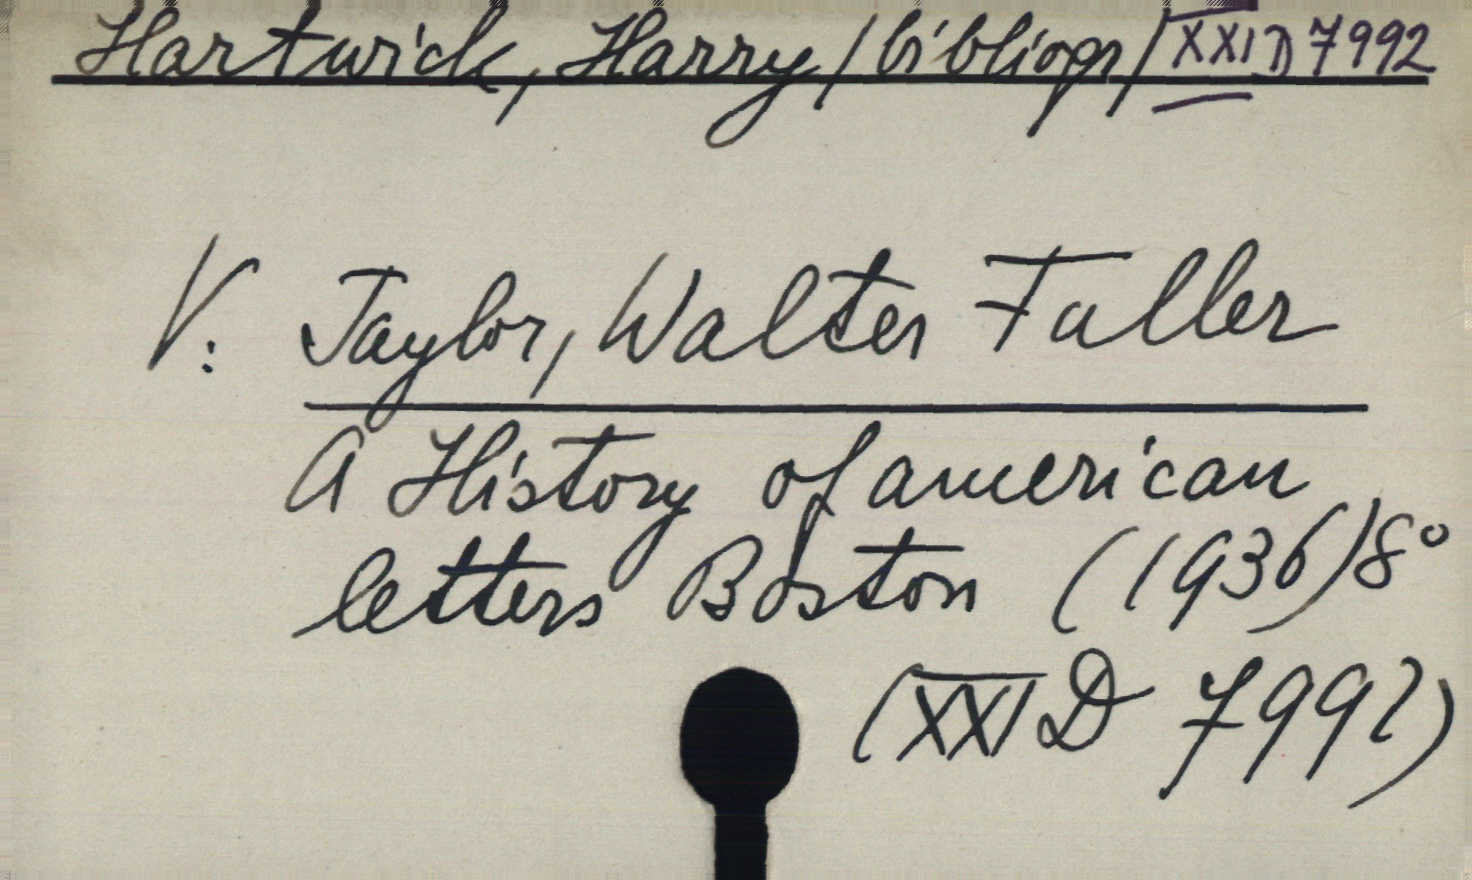 Hartwick, Harry /bibliogr/ XXI D 7992
V. Taylor, Walter Fuller
A History of american
letters Boston (1936) 8°
(XXI D 7992)